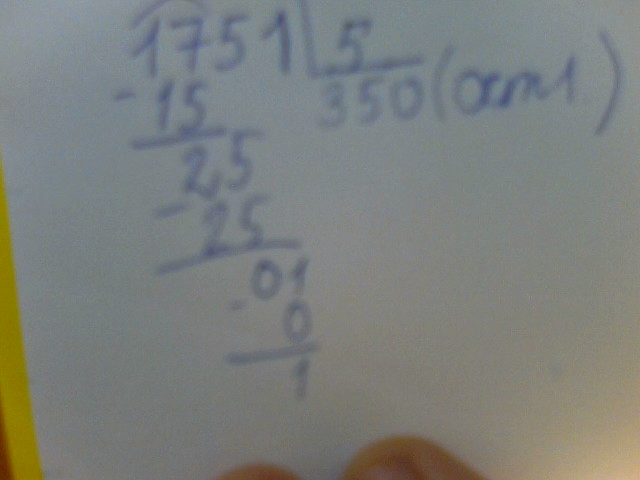 1751 5
- 15 350 (ост 1)
25
- 25
01
- 0
1